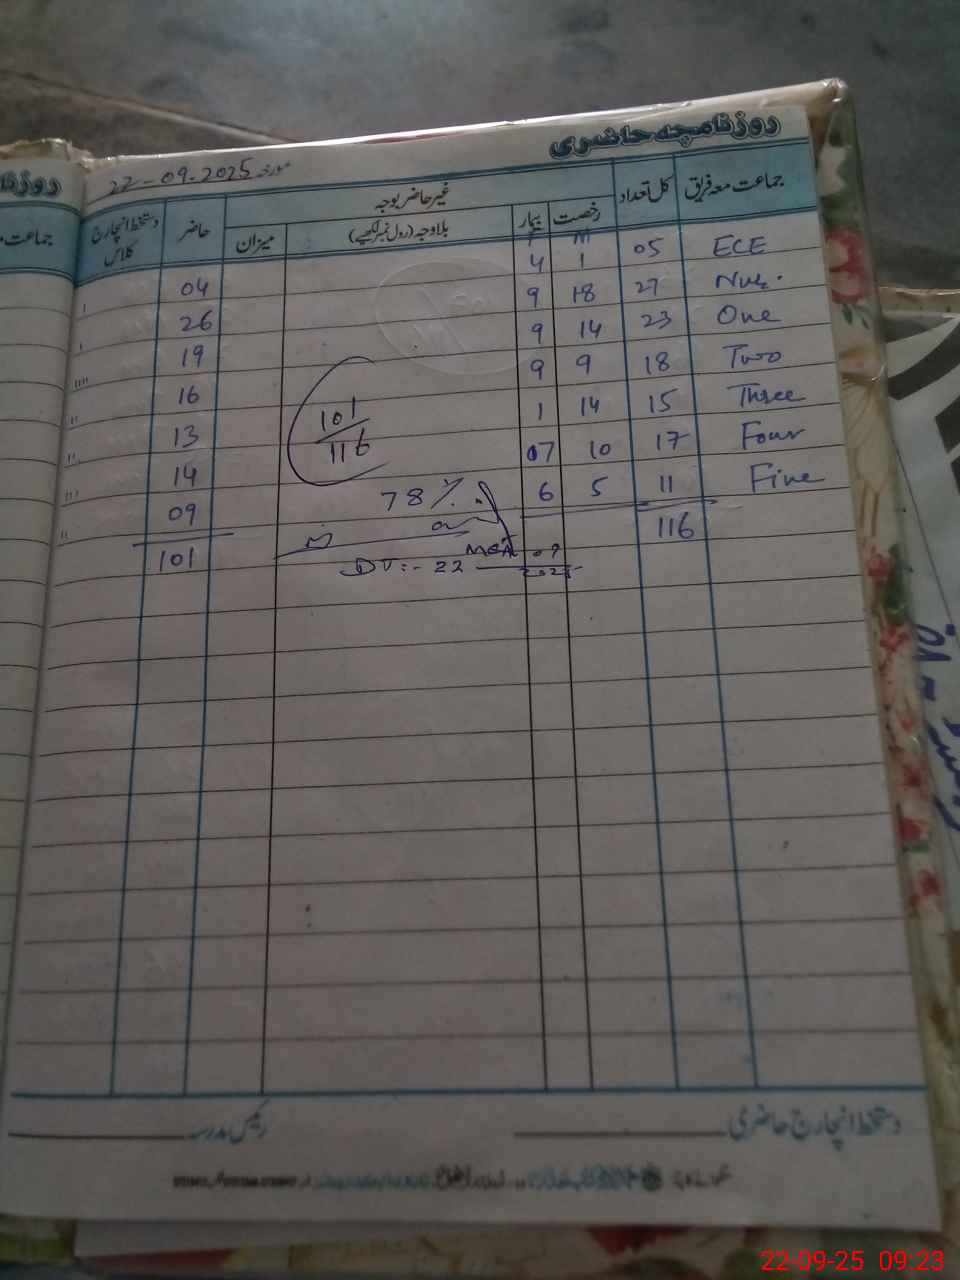 روزنامچہ حاضری
مورخہ 22-09-2025
جماعت معہ فریق کل تعداد غیر حاضر بوجہ حاضر دستخط انچارج کلاس
رخصت بیمار بلاوجہ (رول نمبر لکھیے) میزان
M F
ECE 05 1 4 04
Nur. 27 18 9 26
One 23 14 9 19
Two 18 9 9 16
Three 15 14 1 13
Four 17 10 07 14
Five 11 5 6 09
116 101
101
116
78 %.
MEA
DT:- 22 09
2025
دستخط انچارج حاضری
رئیس مدرسہ
22-09-25 09:23